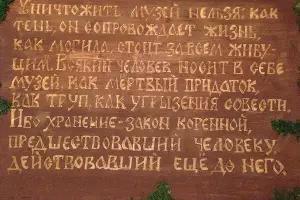 Уничтожить музей нельзя: как
тень, он сопровождает жизнь,
как могила, стоит за всем живу-
щим. Всякий человек носит в себе
музей, как мёртвый придаток,
как труп, как угрызения совести.
Ибо хранение – закон коренной,
предшествовавший человеку,
действовавший ещё до него.